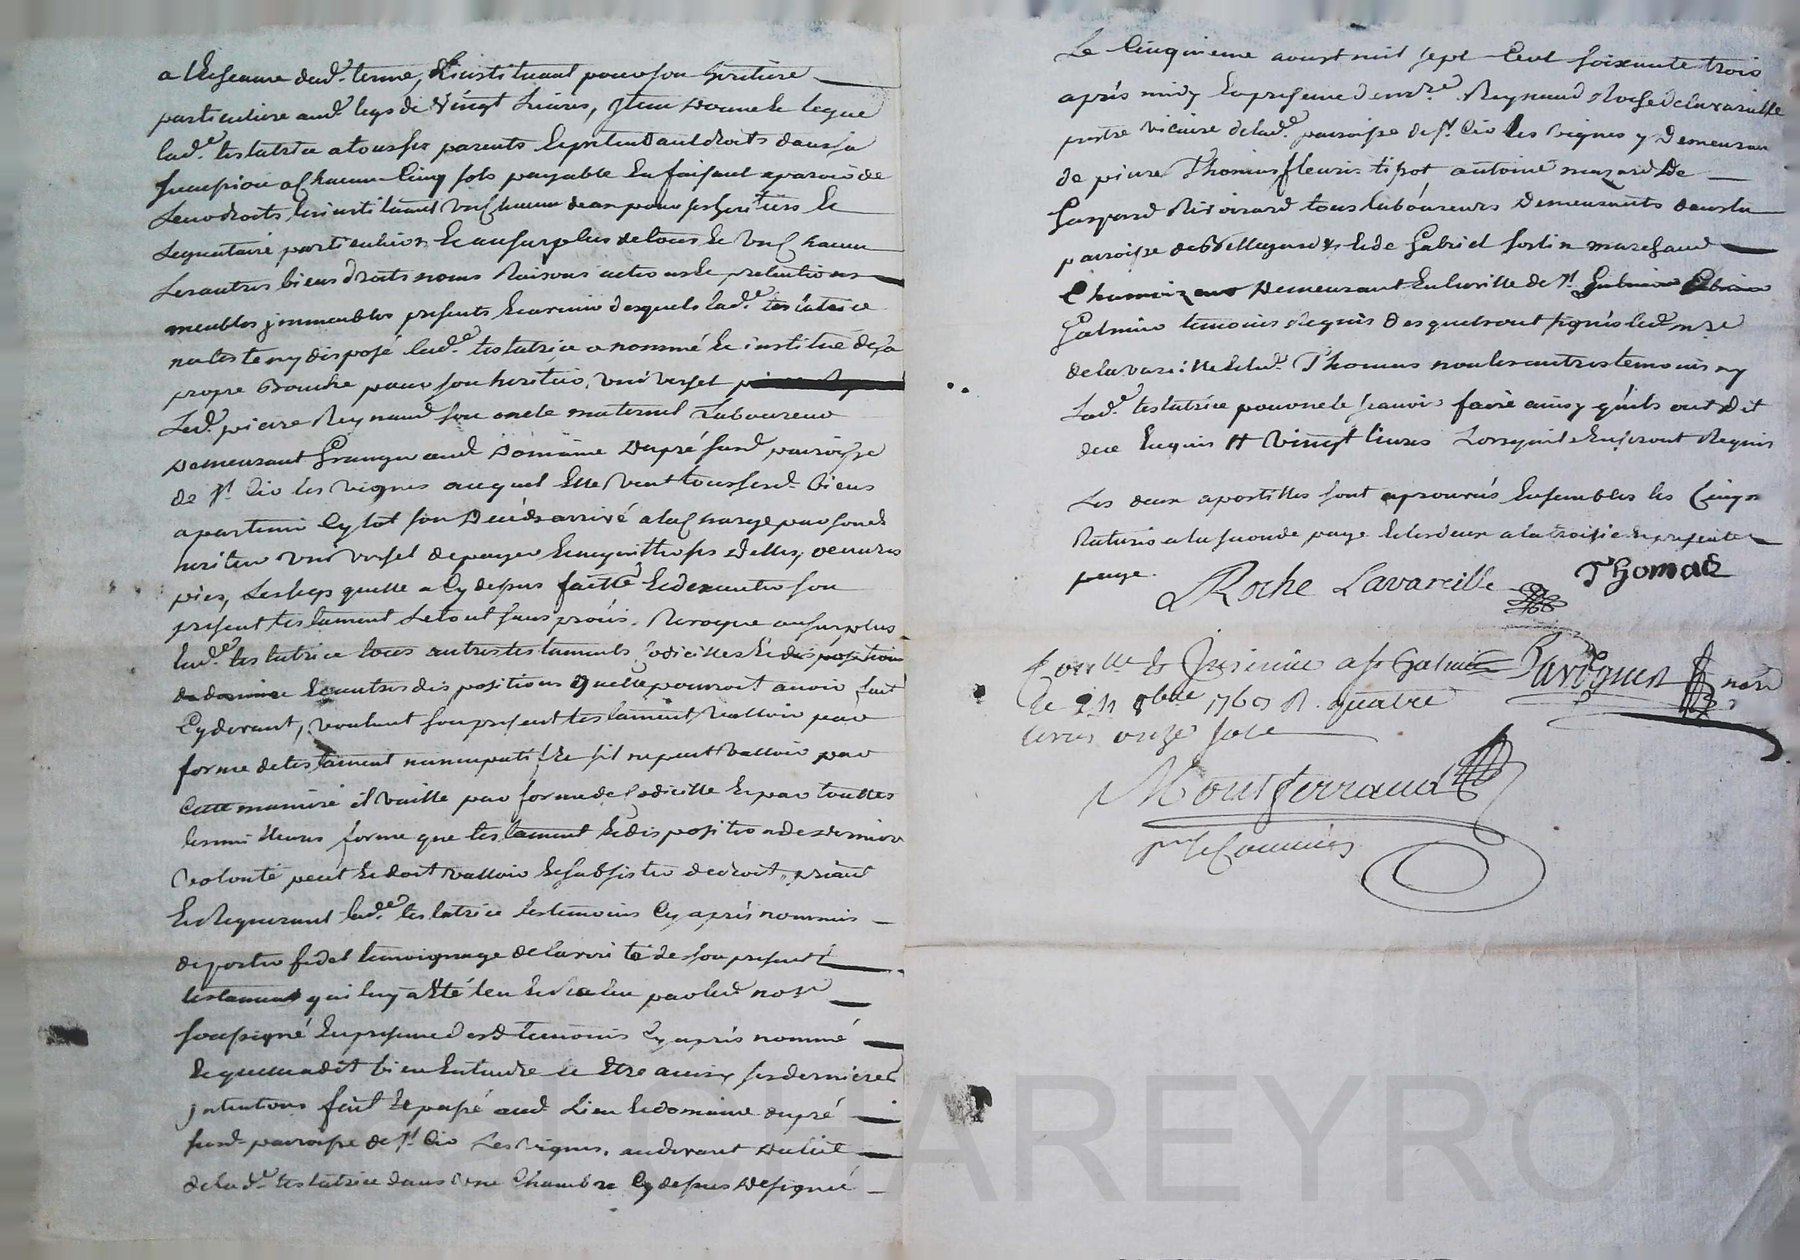 a l'escance dud. terme, l'instituant pour son heritiere
particuliere aud. legs de vingt livres, jtem donne et legue
lad.e testatrice a tous ses parents et pretendant droits dans sa
sucession a chacun cinq sols payable en faisant aparoir de
leurs droits les instituant un chacun deux pour ses heritiers et
legataire particulliers et au surplus de tous et un chacun
les autres biens droits noms raisons actions et pretentions
meubles jmmeubles presents et avenir desquels lad.e testatrice
na teste ny disposé lad.e testatrice a nommé et institué de sa
propre bouche pour son heritier universel
led. pierre Reynaud son oncle maternel Laboureur
demeurant granger aud. Domaine dupré susd. paroisse
de st. Cir les vignes auquel elle veut tous sesd. biens
apartenir sytot son deces arrivé a la charge par sond.
heritier universel de payer et aquitter ses dettes, oeuvres
pies, les legs quelle a cy depus faitte et dexecuter son
present testament le tout sans proces. Revoque au surplus
lad.e testatrice tous autres testaments codicilles et
et autres dispositions quelle pourroit avoir fait
cy devant, voulant son present testament valloir par
forme de testament nuncupatif et sil ne peut valloir par
cette maniere il vaille par forme de codicille et par touttes
les meilleures forme que testament et disposition de derniere
volonté peut et doit valloir et subsister de droit, priant
et requerant lad.e testatrice les temoins cy après nommés
de porter fidel temoignage de la verité de son present
testament qui luy a été leu et releu par led. no.re
soussigné en presence desd. temoins cy après nommé
lequelle a dit bien entendre et etre ainsy ses dernieres
jntentions fait et passé aud. lieu et domaine dupré
susd. paroisse de st. Cir les vignes, au devant du lit
de lad.e testatrice dans une chambre cy depus designé
Le cinquieme aoust mil sept cent soixante trois
après midy en presence de m.re Reynaud Roche de lavareille
pretre vicaire de lad.e paroisse de st. Cir les vignes y demeurant
de pierre Thomas fleuris tipot antoine mazard de
Gaspard Rivoirard tous laboureurs demeurants dans la
paroisse de Bellegarde et de Gabriel fortin marchand
Chamoizeur demeurant en la ville de st.
Galmier temoins requis desquels ont signés led. m.re
de lavareille et led. Thomas non les autres temoins ny
lad.e testatrice pour ne le scavoir faire ainsy quils ont dit
de ce enquis # vingt livres Lorsquils en seront Requis
Les deux apostilles sont aprouvés ensembles les cinq
Raturés a la seconde page et les deux a la troisieme presente
page.
Roche Lavareille Thomas
Conttle. & Jnsinué a st Galmier
le 24 8bre 1763 R. quatre
livres onze sols
Montferrand
pr le Commis